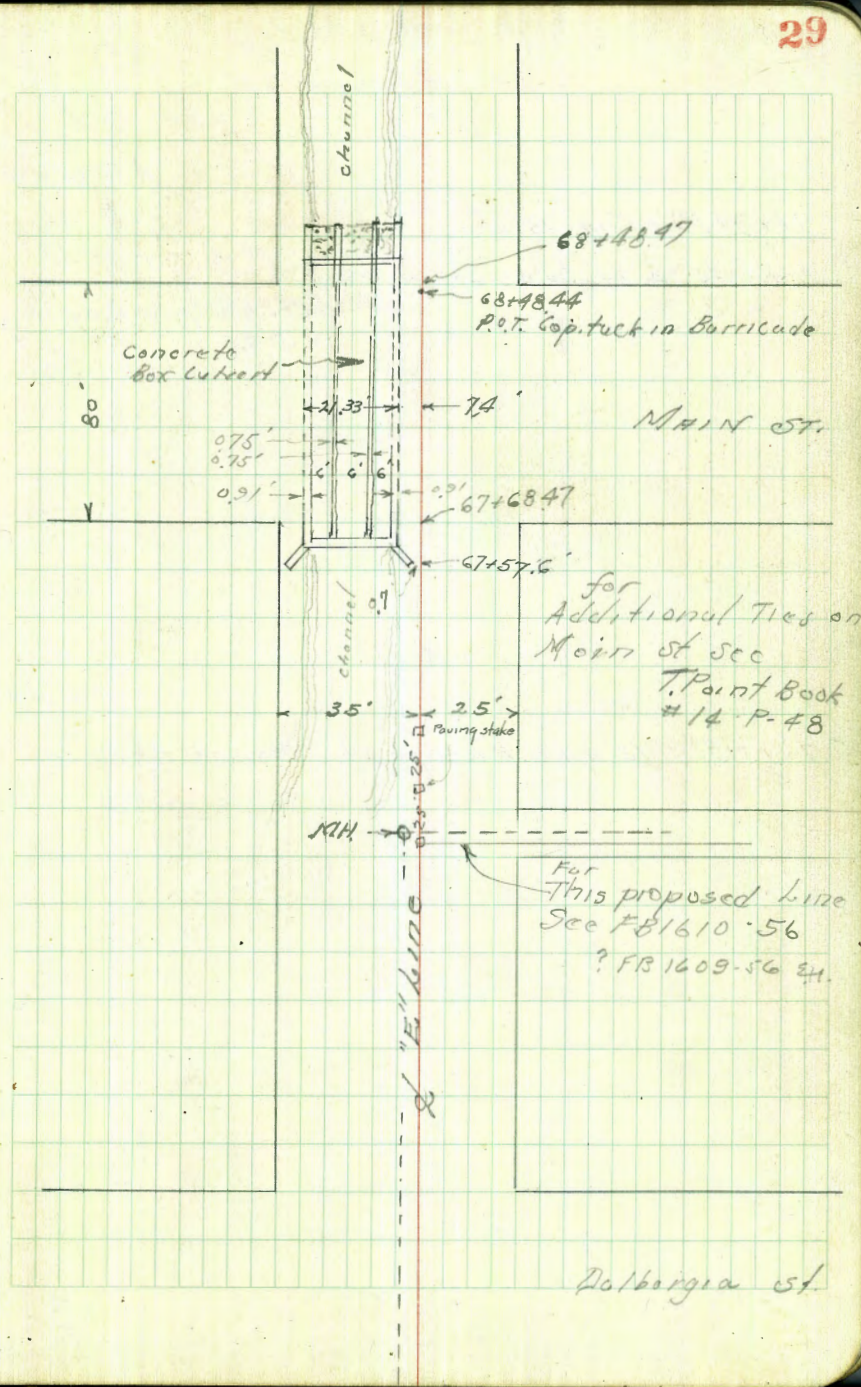 29
channel
68+48.47
68+48.44
P.O.T. Cop. tack in Barricade
Concrete
Box Culvert
80'
21.33'
7.4'
MAIN ST.
0.75'
0.75'
6' 6' 6'
0.91'
0.91
67+68.47
67+57.6'
0.7
channel
for
Additional Ties on
Main St see
T. Point Book
#14 P-48
35'
25'
Paving stake
25'
25'
MH.
For
This proposed Line
See FB1610-56
? FB 1609-56 EH.
"E" Line
Dalbergia St.